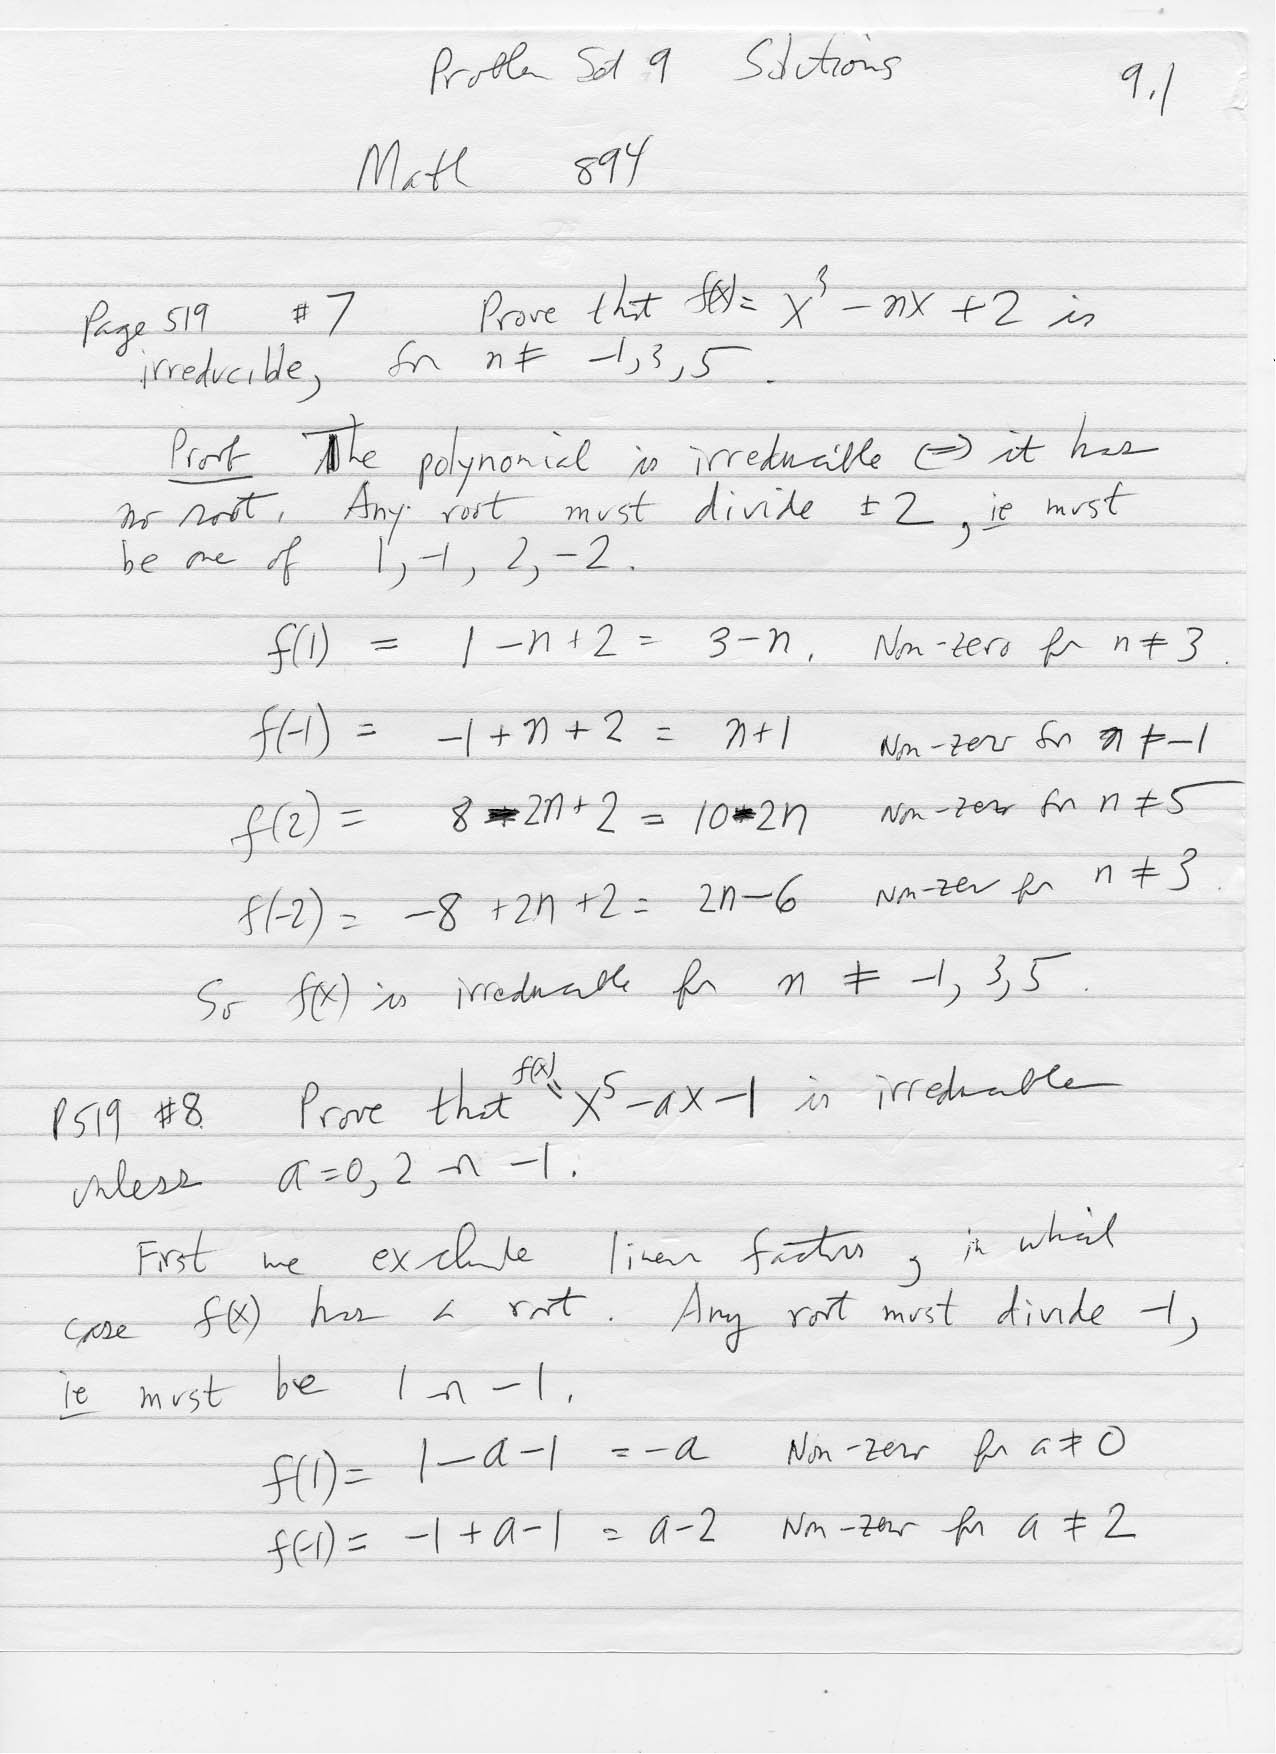 Problem Set 9 Solutions 9.1
Math 894
Page 519 #7 Prove that f(x)= x³ - nx + 2 is
irreducible, for n ≠ -1, 3, 5.
Proof The polynomial is irreducible ⇔ it has
no root. Any root must divide ±2, ie must
be one of 1, -1, 2, -2.
f(1) = 1 - n + 2 = 3 - n. Non-zero for n ≠ 3.
f(-1) = -1 + n + 2 = n+1 Non-zero for n ≠ -1
f(2) = 8 - 2n + 2 = 10 - 2n Non-zero for n ≠ 5
f(-2) = -8 + 2n + 2 = 2n - 6 Non-zero for n ≠ 3.
So f(x) is irreducible for n ≠ -1, 3, 5.
P519 #8. Prove that f(x) = x⁵ - ax - 1 is irreducible
unless a = 0, 2 or -1.
First we exclude linear factors, in which
case f(x) has a root. Any root must divide -1,
ie must be 1 or -1.
f(1) = 1 - a - 1 = -a Non-zero for a ≠ 0
f(-1) = -1 + a - 1 = a - 2 Non-zero for a ≠ 2